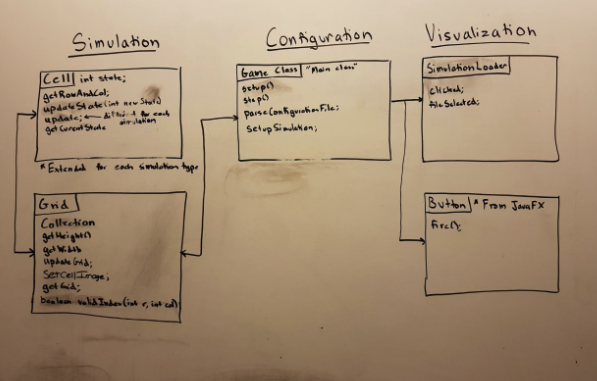 Simulation
Cell
int state;
getRowAndCol;
updateState(int newState)
update; ← different for each
simulation
getCurrentState
*Extended for each simulation type
Grid
Collection
getHeight()
getWidth
updateGrid;
SetCellImage;
getGrid;
boolean validIndex(int r, int col);
Configuration
Game Class
"Main class"
setup()
step()
parseConfigurationFile;
SetupSimulation;
Visualization
SimulationLoader
clicked;
fileSelected;
Button
* From JavaFX
fire();